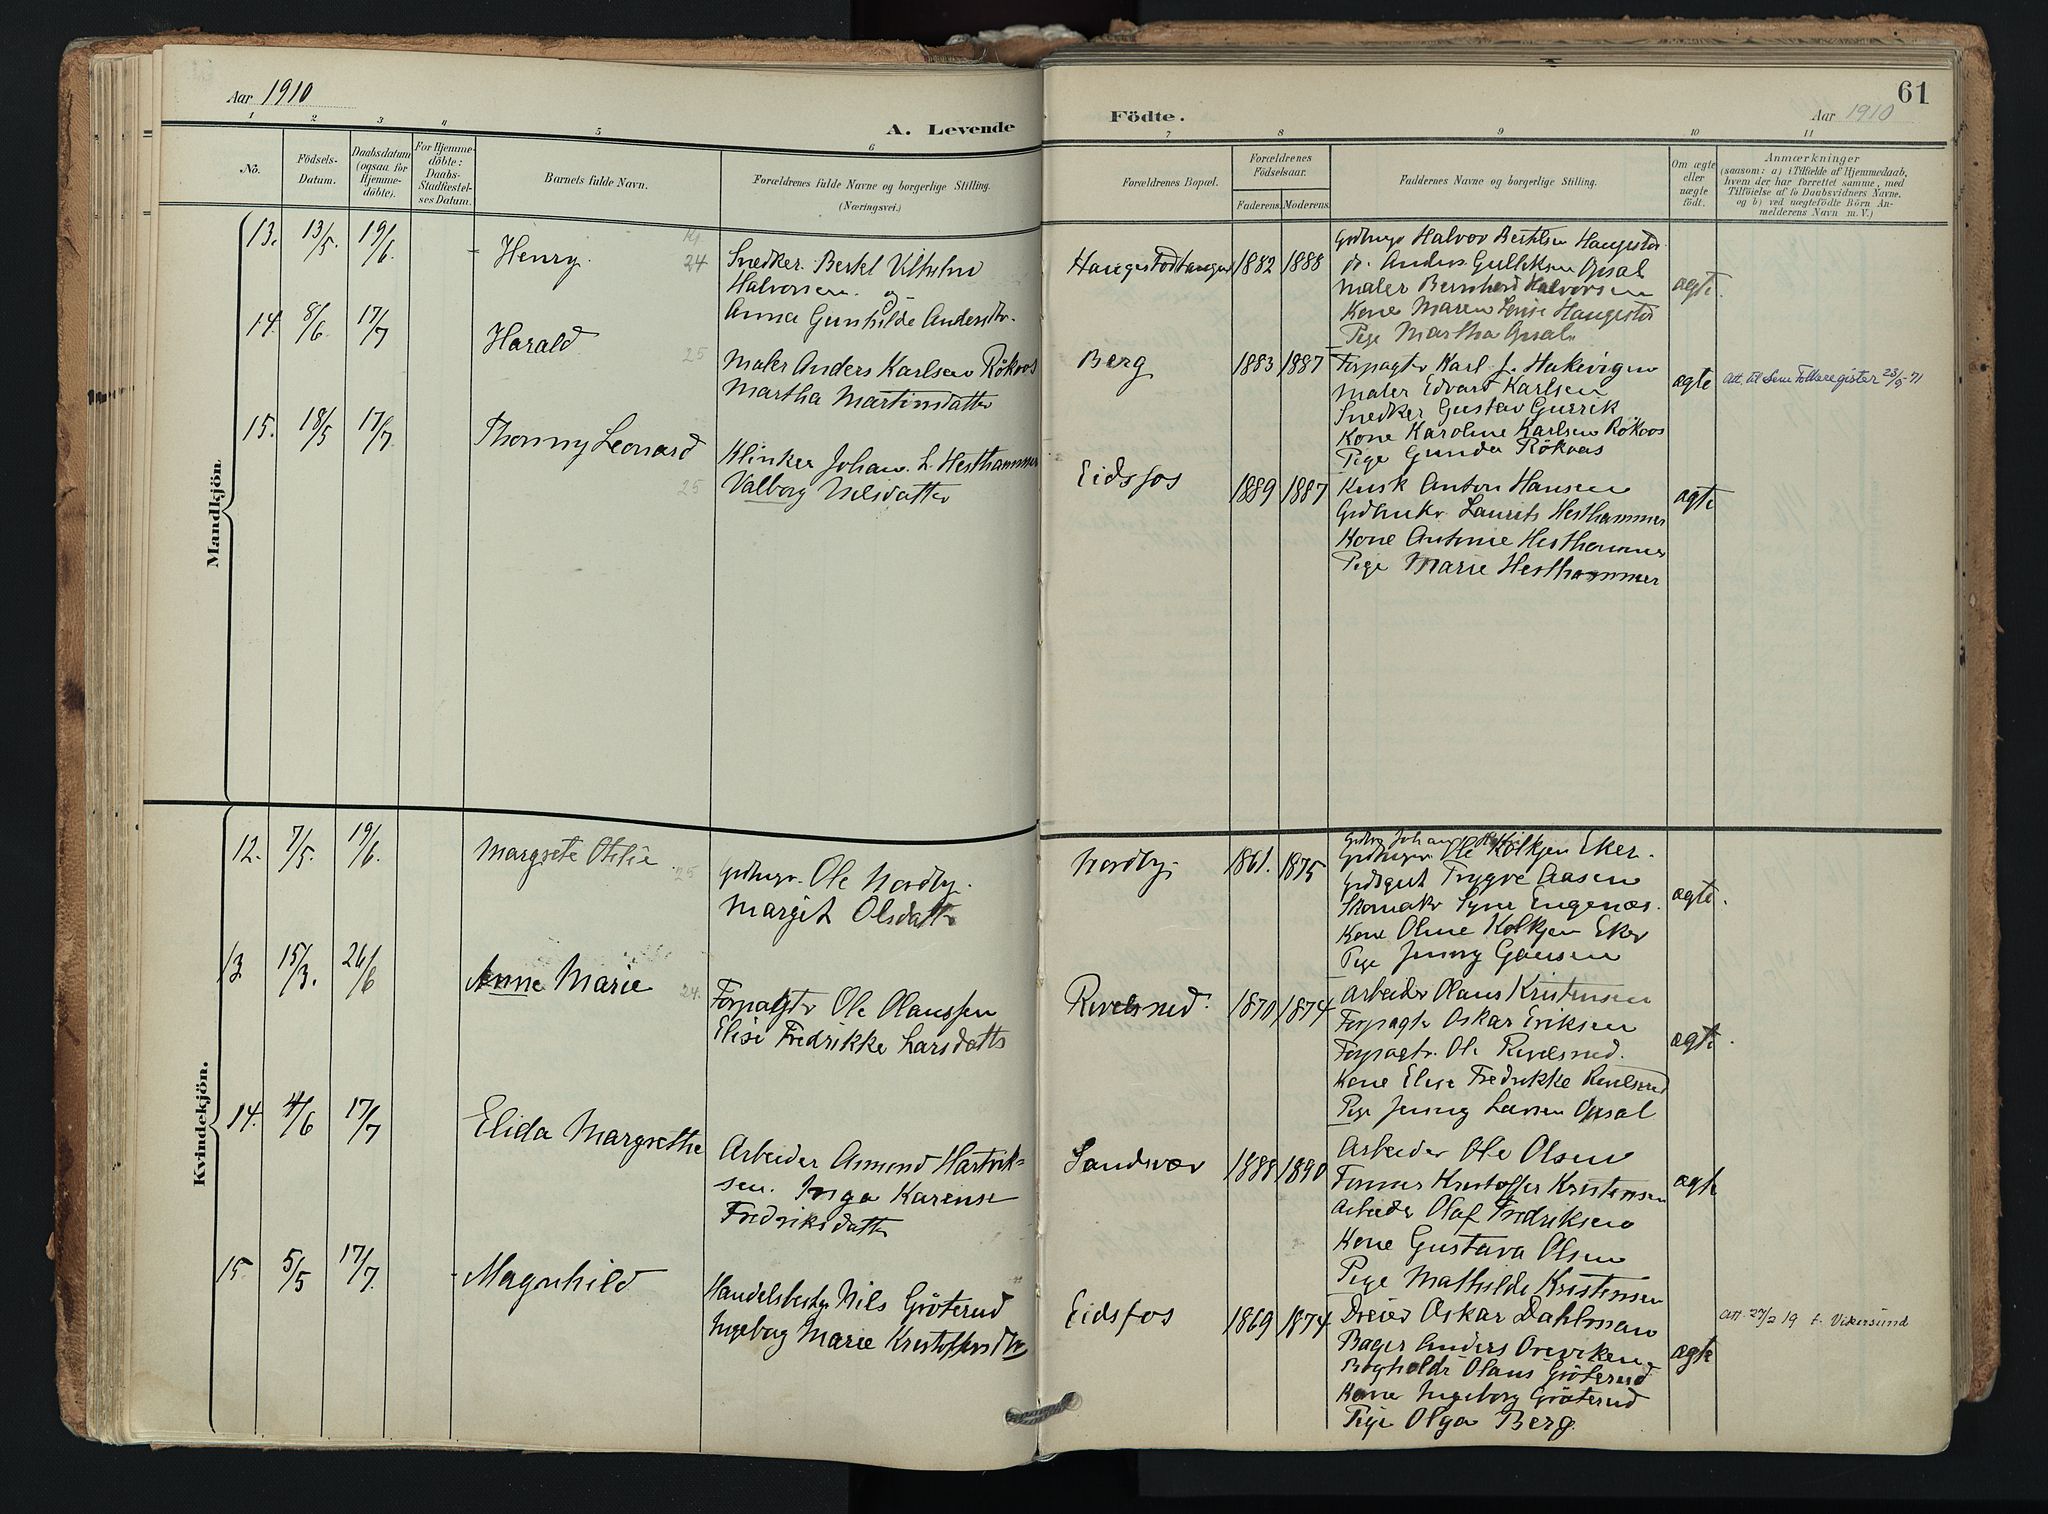 Aar 1910
A. Levende
Födte.
61
Aar 1910
1 2 3 4 5 6 7 8 9 10 11
No.
Födsels-
Datum.
Daabsdatum
(ogsaa for
Hjemme-
döbte).
For Hjemme-
döbte:
Daabs-
Stadfæstel-
ses Datum.
Barnets fulde Navn.
Forældrenes fulde Navne og borgerlige Stilling.
(Næringsvei.)
Forældrenes Bopæl.
Forældrenes
Födselsaar.
Faderens. Moderens.
Faddernes Navne og borgerlige Stilling.
Om ægte
eller
uægte
födt.
Anmærkninger
(saasom: a) i Tilfælde af Hjemmedaab,
hvem der har forrettet samme, med
Tilföielse af to Daabsvidners Navne.
og b) ved uægtefödte Börn An-
melderens Navn m. V.)
Mandkjön.
13. 13/5. 19/6. Henry. 24
Snedker Bertel Vilhelm
Halvorsen og
Anna Gunhilde Andersdtr.
1882 1888
Halvor Bertelsen
Anders Gulliksen Opsal
Maler Bernhard Halvorsen
Kone Maren
Pige Martha Opsal
ægte
14. 8/6. 17/7 Harald 25
Maler Anders Karlsen Rökaas
Martha Martinsdatter
Berg 1883 1887
Forpagter Karl J. Hakevigen
Maler Edvart Karlsen
Snedker Gustav Gurrik
Kone Karoline Karlsen Rökaas
Pige Gunda Rökaas
ægte
Att. til Sem Folkeregister 23/9 71
15. 18/5 17/7. Thonny Leonard 25
Klinker Johan L. Hesthammer
Valborg Nilsdatter
Eidsfos 1889 1887
Kusk Anton Hansen
Laurits Hesthammer
Kone Antonie Hesthammer
Pige Marie Hesthammer
ægte
Kvindekjön.
12. 7/5. 19/6. Margrete Otilie 25
Grdbrgr. Ole Nordby.
Margit Olsdatter
Nordby. 1861. 1875
Ole Kolkjen Eker.
Trygve Aasen
Skomaker Syne Engenæs.
Kone Oline Kolkjen Eker
Pige Jenny Gausen
ægte.
13 15/3. 26/6 Anne Marie 24.
Forpagter Ole Olaussen
Elise Fredrikke Larsdatter
Revelsrud. 1870 1874
Arbeider Olaus Kristensen
Forpagter Oskar Eriksen
Forpagtr. Ole Revelsrud.
Kone Elise Fredrikke Revelsrud
Pige Jenny Larsen Opsal
ægte.
14. 4/6 17/7 Elida Margrethe
Arbeider Amund Hartvik-
sen. Inga Karense
Fredriksdatter
Sandsvær 1888 1890
Arbeider Ole Olsen
Former Kristoffer Kristensen
Arbeider Olaf Fredriksen
Kone Gustava Olsen
Pige Mathilde Kristensen
ægte
15. 5/5 17/7. Magnhild
Handelsbestyr Nils Gröterud
Ingeborg Marie Kristoffersdtr
Eidsfos 1869 1874
Dreier Oskar Dahlman
Bager Anders Oreviken
Bogholdr Olaus Gröterud
Kone Ingeborg Gröterud
Pige Olga Berg.
ægte
Att. 27/2 19 f. Vikersund